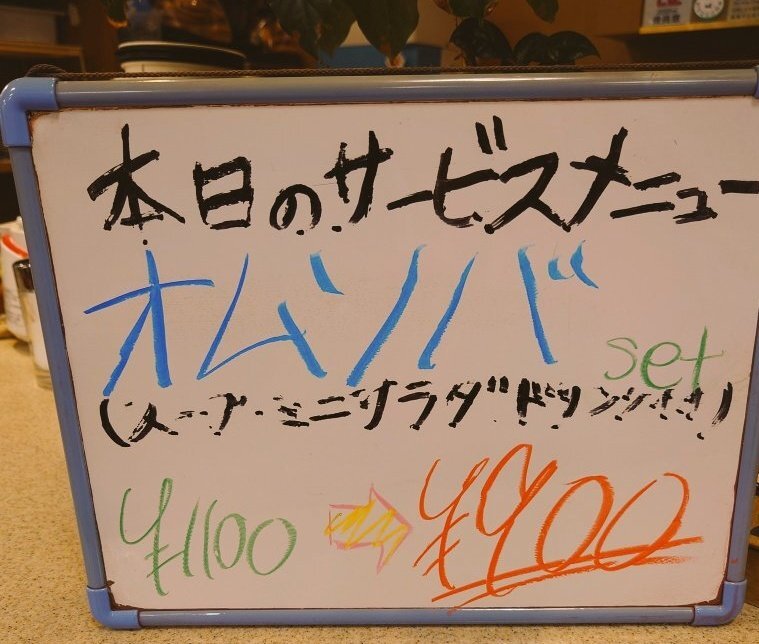 本日のサービスメニュー
オムソバ set
(スープ・ミニサラダ・ドリンク付)
¥1100 ⇨ ¥900